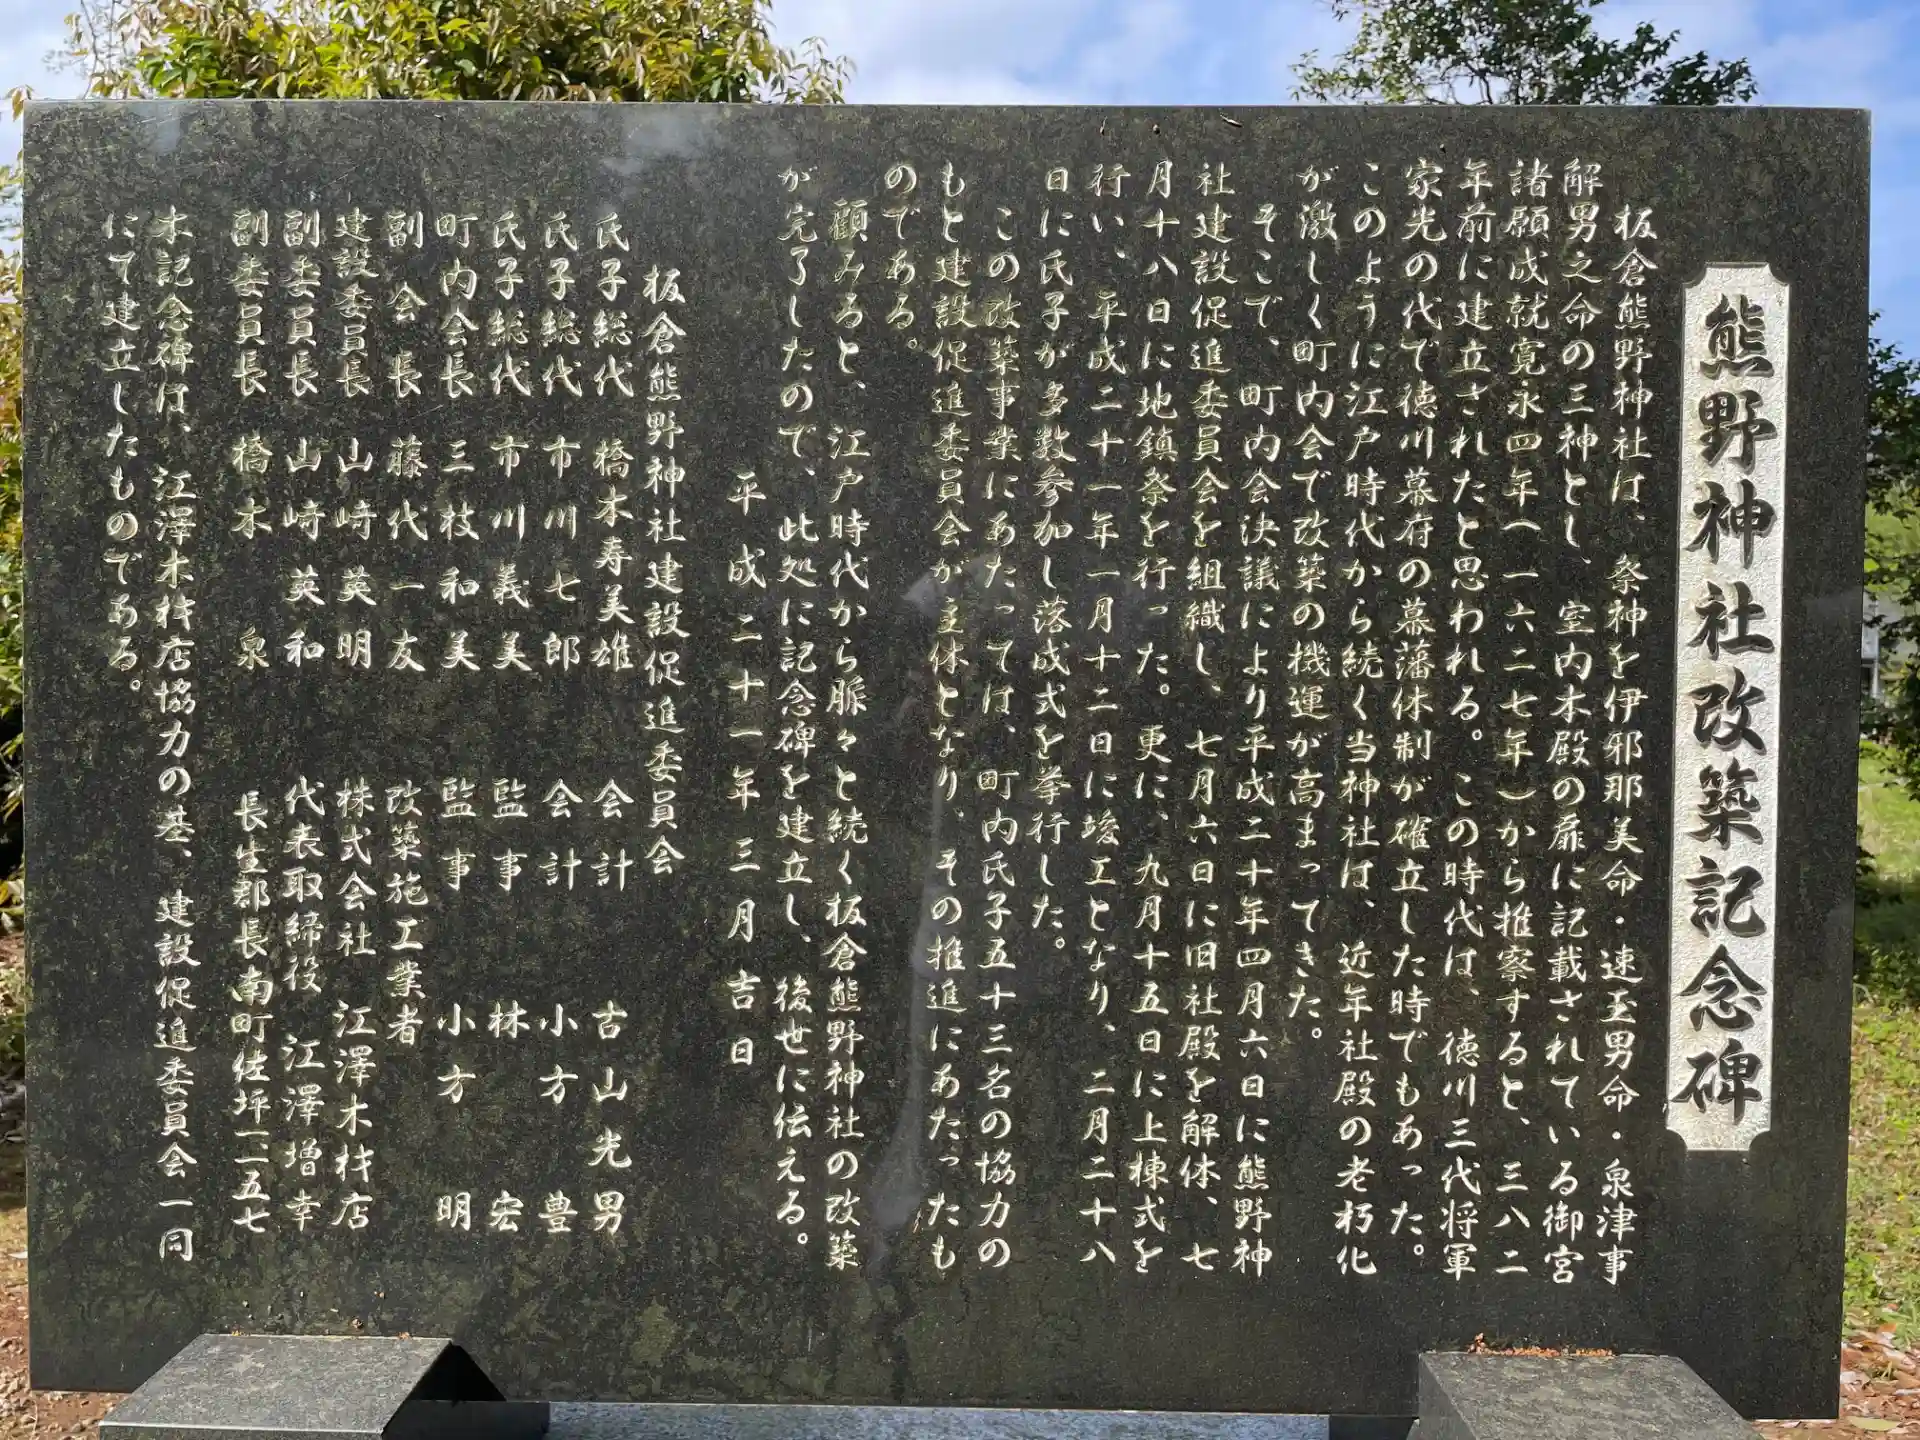 熊野神社改築記念碑
板倉熊野神社は、祭神を伊邪那美命・速玉男命・泉津事
解男之命の三神とし、室内木殿の扉に記載されている御宮
諸願成就寛永四年(一六二七年)から推察すると、三八二
年前に建立されたと思われる。この時代は、徳川三代将軍
家光の代で徳川幕府の幕藩体制が確立した時でもあった。
このように江戸時代から続く当神社は、近年社殿の老朽化
が激しく町内会で改築の機運が高まってきた。
そこで、町内会決議により平成二十年四月六日に熊野神
社建設促進委員会を組織し、七月六日に旧社殿を解体、七
月十八日に地鎮祭を行った。更に、九月十五日に上棟式を
行い、平成二十一年一月十二日に竣工となり、二月二十八
日に氏子が多数参加し落成式を挙行した。
この改築事業にあたっては、町内氏子五十三名の協力の
もと建設促進委員会が主体となり、その推進にあたったも
のである。
顧みると、江戸時代から脈々と続く板倉熊野神社の改築
が完了したので、此処に記念碑を建立し、後世に伝える。
平成二十一年三月吉日
板倉熊野神社建設促進委員会
氏子総代 橋本寿美雄 会計 古山光男
氏子総代 市川七郎 会計 小方豊
氏子総代 市川義美 監事 林宏
町内会長 三枝和美 監事 小方明
副会長 藤代一友 改築施工業者
建設委員長 山崎英明 株式会社 江澤木材店
副委員長 山崎英和 代表取締役 江澤増幸
副委員長 橋本泉 長生郡長南町佐坪一一五七
本記念碑は、江澤木材店協力の基、建設促進委員会一同
にて建立したものである。